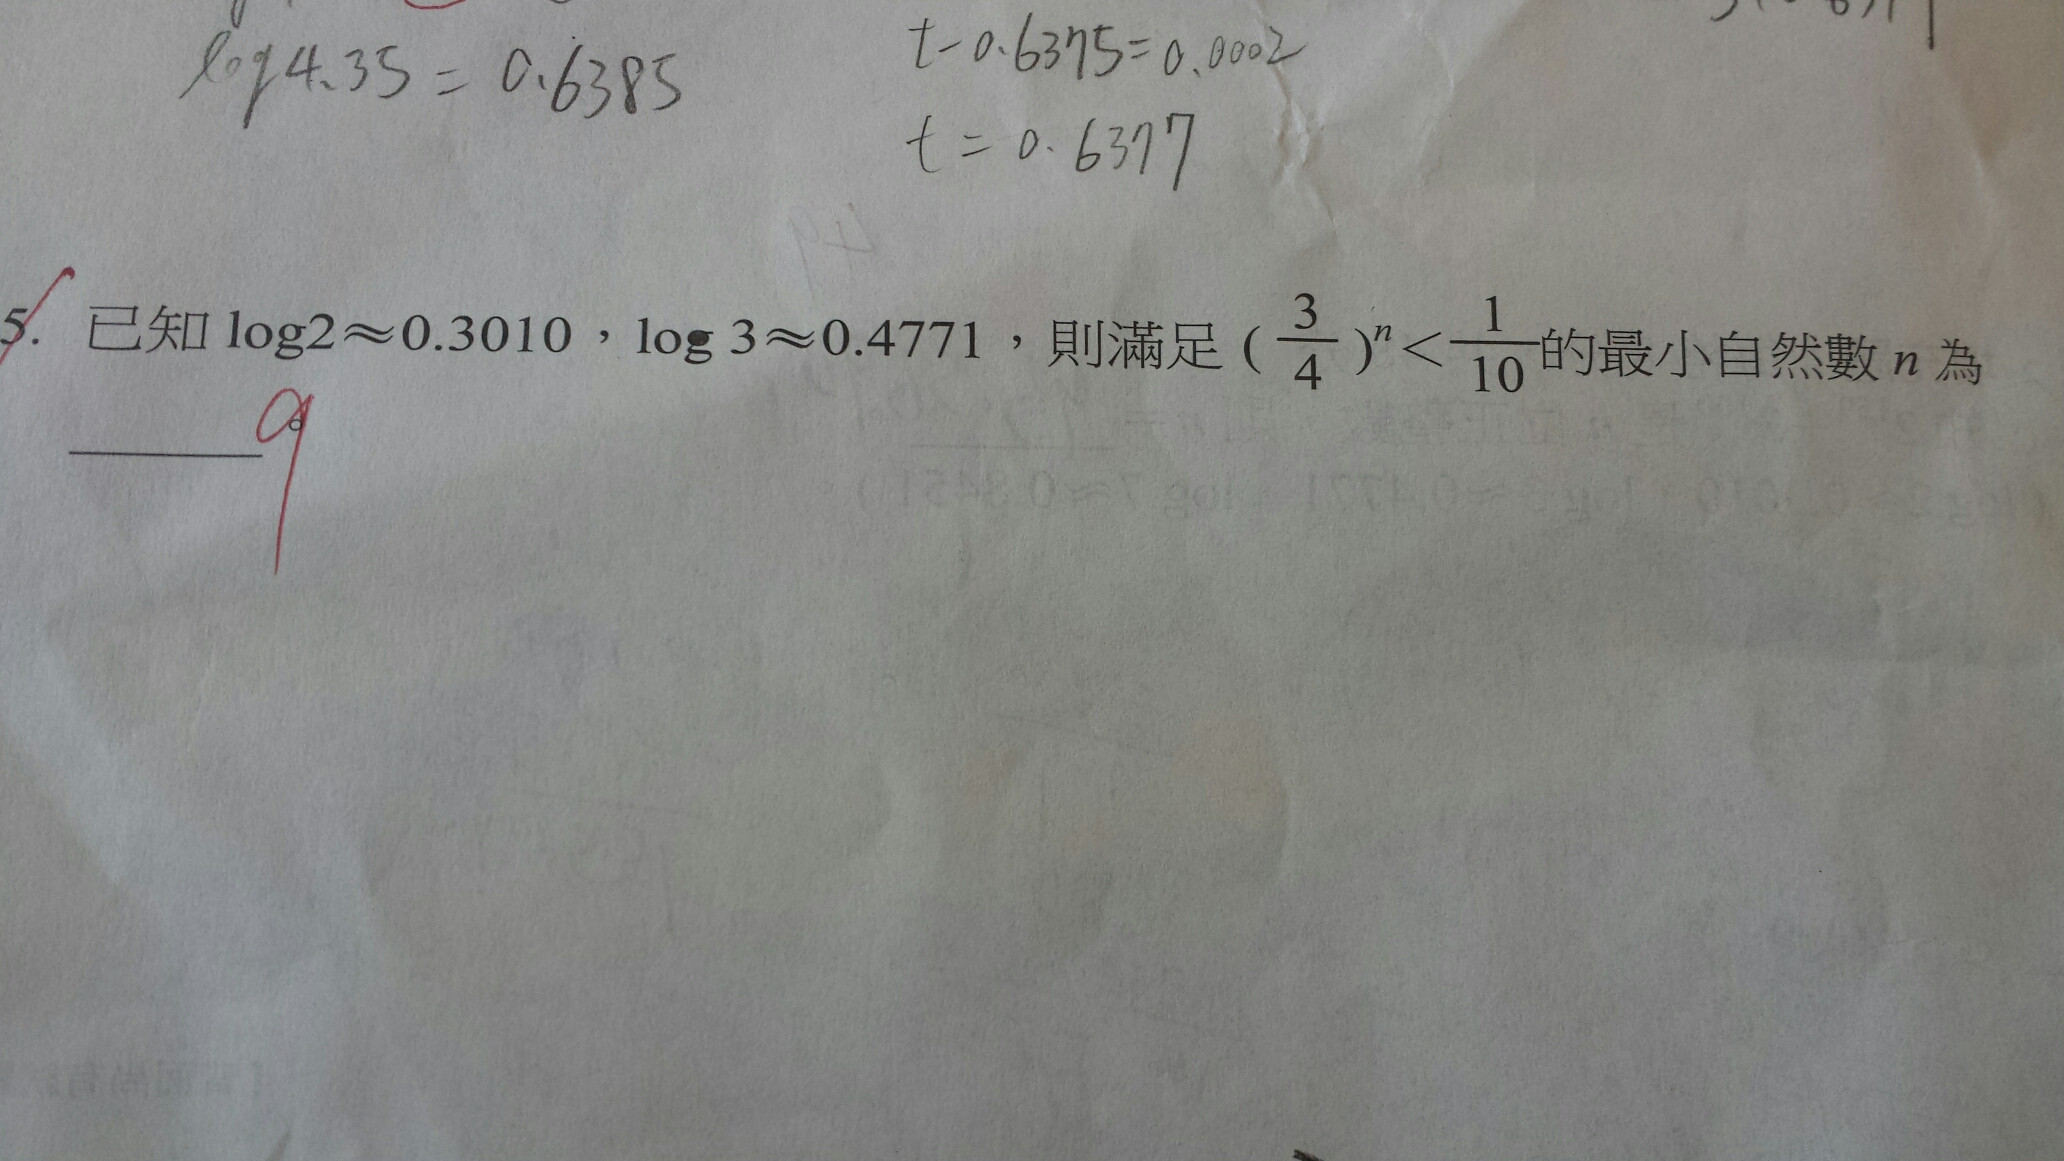 log4.35 = 0.6385
t-0.6375=0.0002
t = 0.6377
5. 已知 log2≈0.3010，log 3≈0.4771，則滿足 ( 3/4 )ⁿ < 1/10 的最小自然數 n 為
______。
9